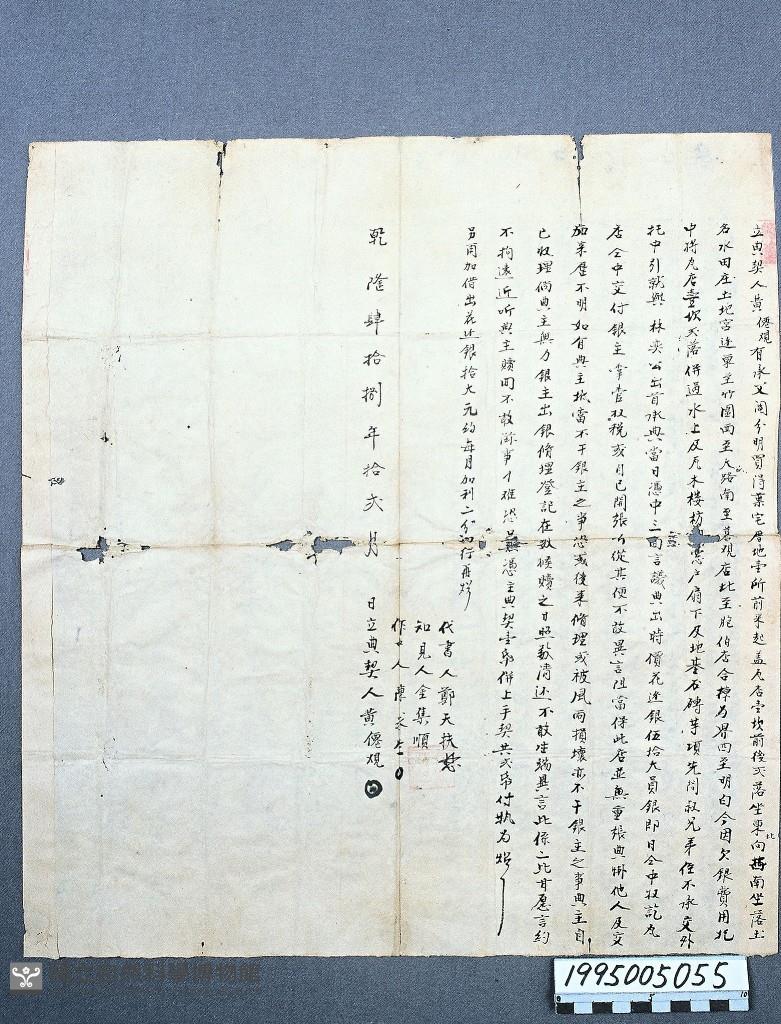 立典契人黃僊观有承父鬮分明買得葉宅厝地壹所前來起盖瓦店壹坎前後弍落坐東北向南坐落土
名水田庄土地宮边東至竹圍西至大路南至 观店北至 伯店合棟为界四至明白今因欠銀費用托
中將瓦店壹坎弍落併過水上及瓦木樓枋 户扇下及地基石磚等項先問叔兄弟侄不承交外
托中引就與林奕公出首承典當日憑中三面言議典出時價花边銀伍拾大員銀即日仝中收訖瓦
店仝中交付銀主掌管收稅或自已開張以從其便不敢異言阻當保此店並無重張典掛他人及交
加來歷不明如有典主抵當不干銀主之事恐或後來脩理或被風雨損壞亦不干銀主之事典主自
己收理倘典主無力銀主出銀脩理登記在数候贖之日照数清还不敢生端異言此係二比甘愿言約
不拘遠近听典主贖回不敢 事刁难恐 無憑立典契壹帋併上手契共弍帋付执为炤
另用加借出花边銀拾大元約每月加利二分 行再炤
代書人鄭天扶
知見人金集順
作中人陳
乾隆肆拾捌年拾弍月 日立典契人黃僊观
國立自然科學博物館
1995005055